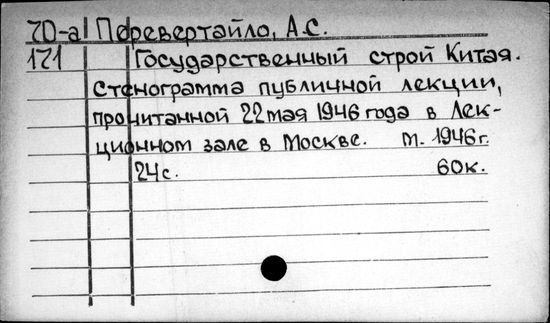 70-а Перевертайло, А.С.
171 Государственный строй Китая.
Стенограмма публичной лекции,
прочитанной 22 мая 1946 года в Лек-
ционном зале в Москве. М. 1946г.
24с. 60к.